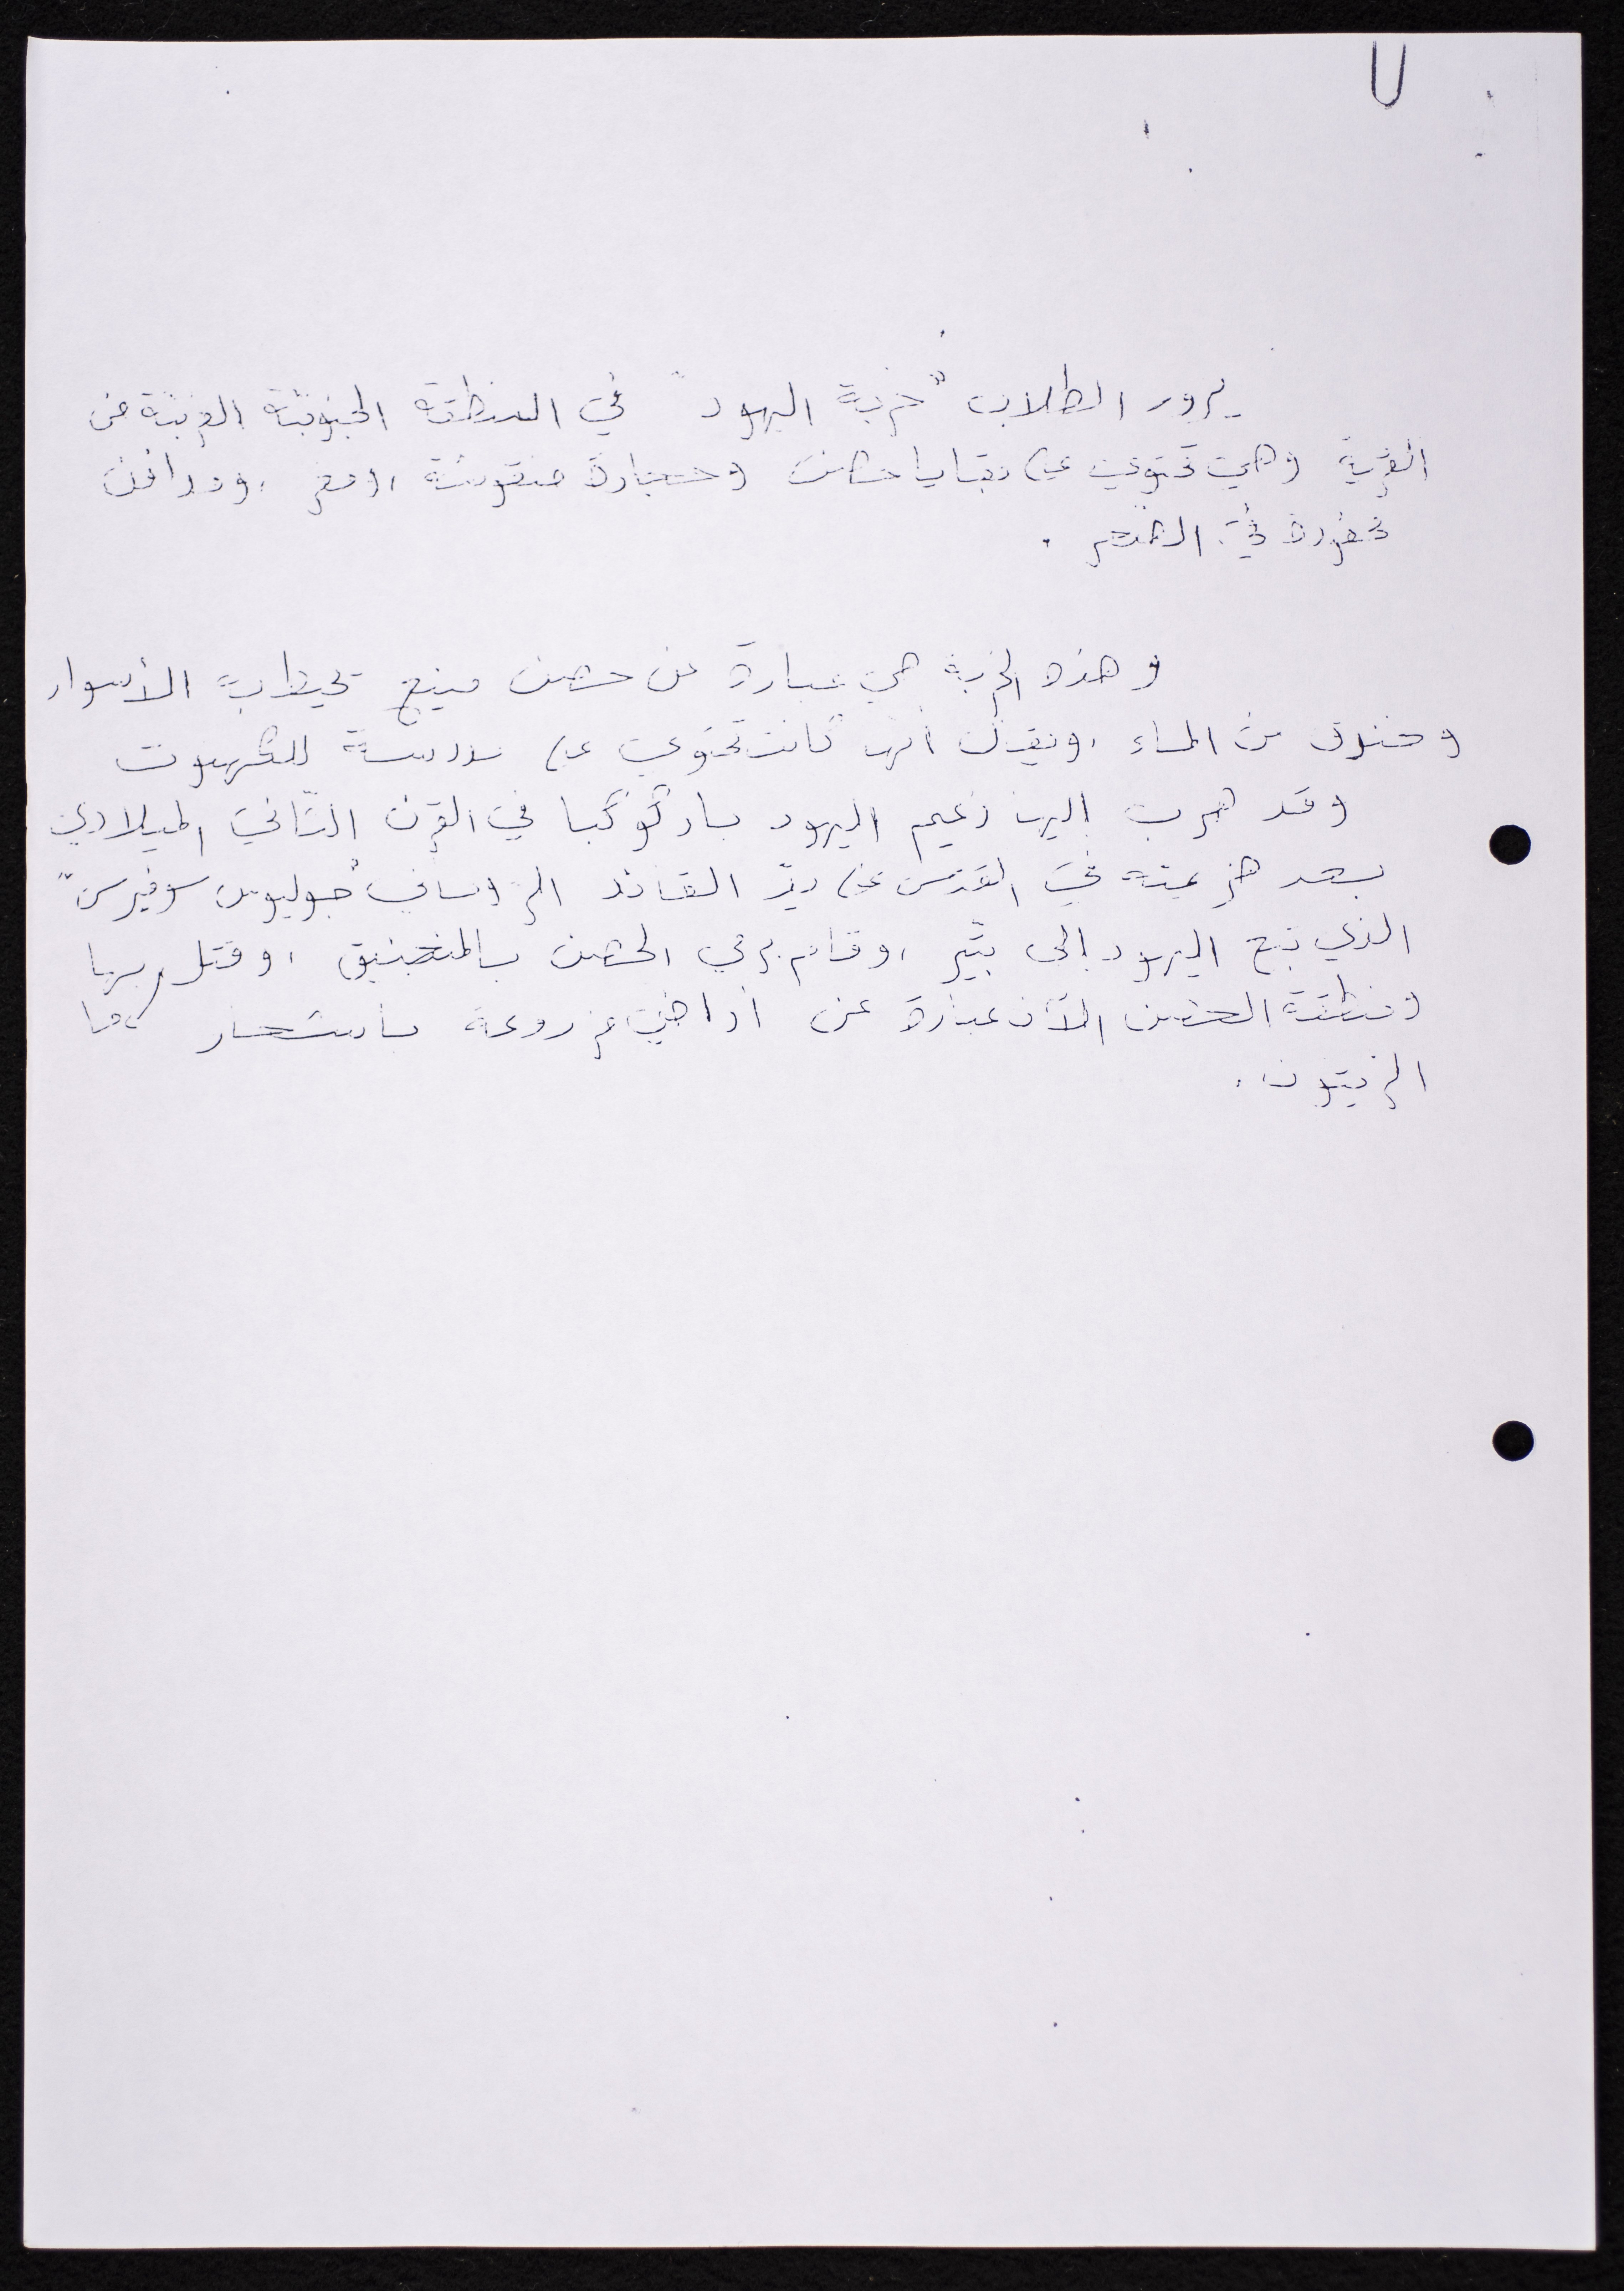 يزور الطلاب "خربة اليهود" في المنطقة الجنوبية الغربية من
القرية وهي تحتوي على بقايا حصن وحجارة منقوشة ، ومغر ، ومدافن
محفورة في الصخر .
وهذه الخربة هي عبارة عن حصن منيع تحيط به الأسوار
وخندق من الماء ، ويقال أنها كانت تحتوي على مدرسة للكهنوت
وقد هرب إليها زعيم اليهود باركوكبا في القرن الثاني الميلادي
بعد هزيمته في القدس على يد القائد الروماني "جوليوس سوفيرس"
الذي تبع اليهود إلى بتير ، وقام برمي الحصن بالمنجنيق ، وقتل بها
ومنطقة الحصن الآن عبارة عن أراضي مزروعة بأشجار
الزيتون .